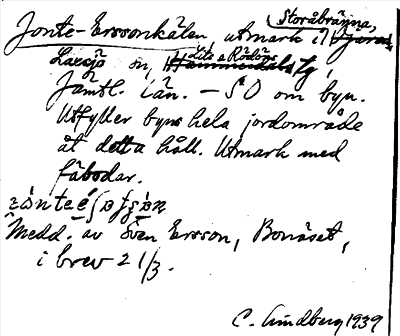 Jonte-Erssonkälen, utmark i Storåbränna,
Laxsjö sn, Lits o Rödöns tg,
Jämtl. län. – SO om byn.
Utfyller byns hela jordområde
åt detta håll. Utmark med
fäbodar.
Medd. av Sven Ersson, Bonäset,
i brev 2 1/3.
C. Lindberg 1939